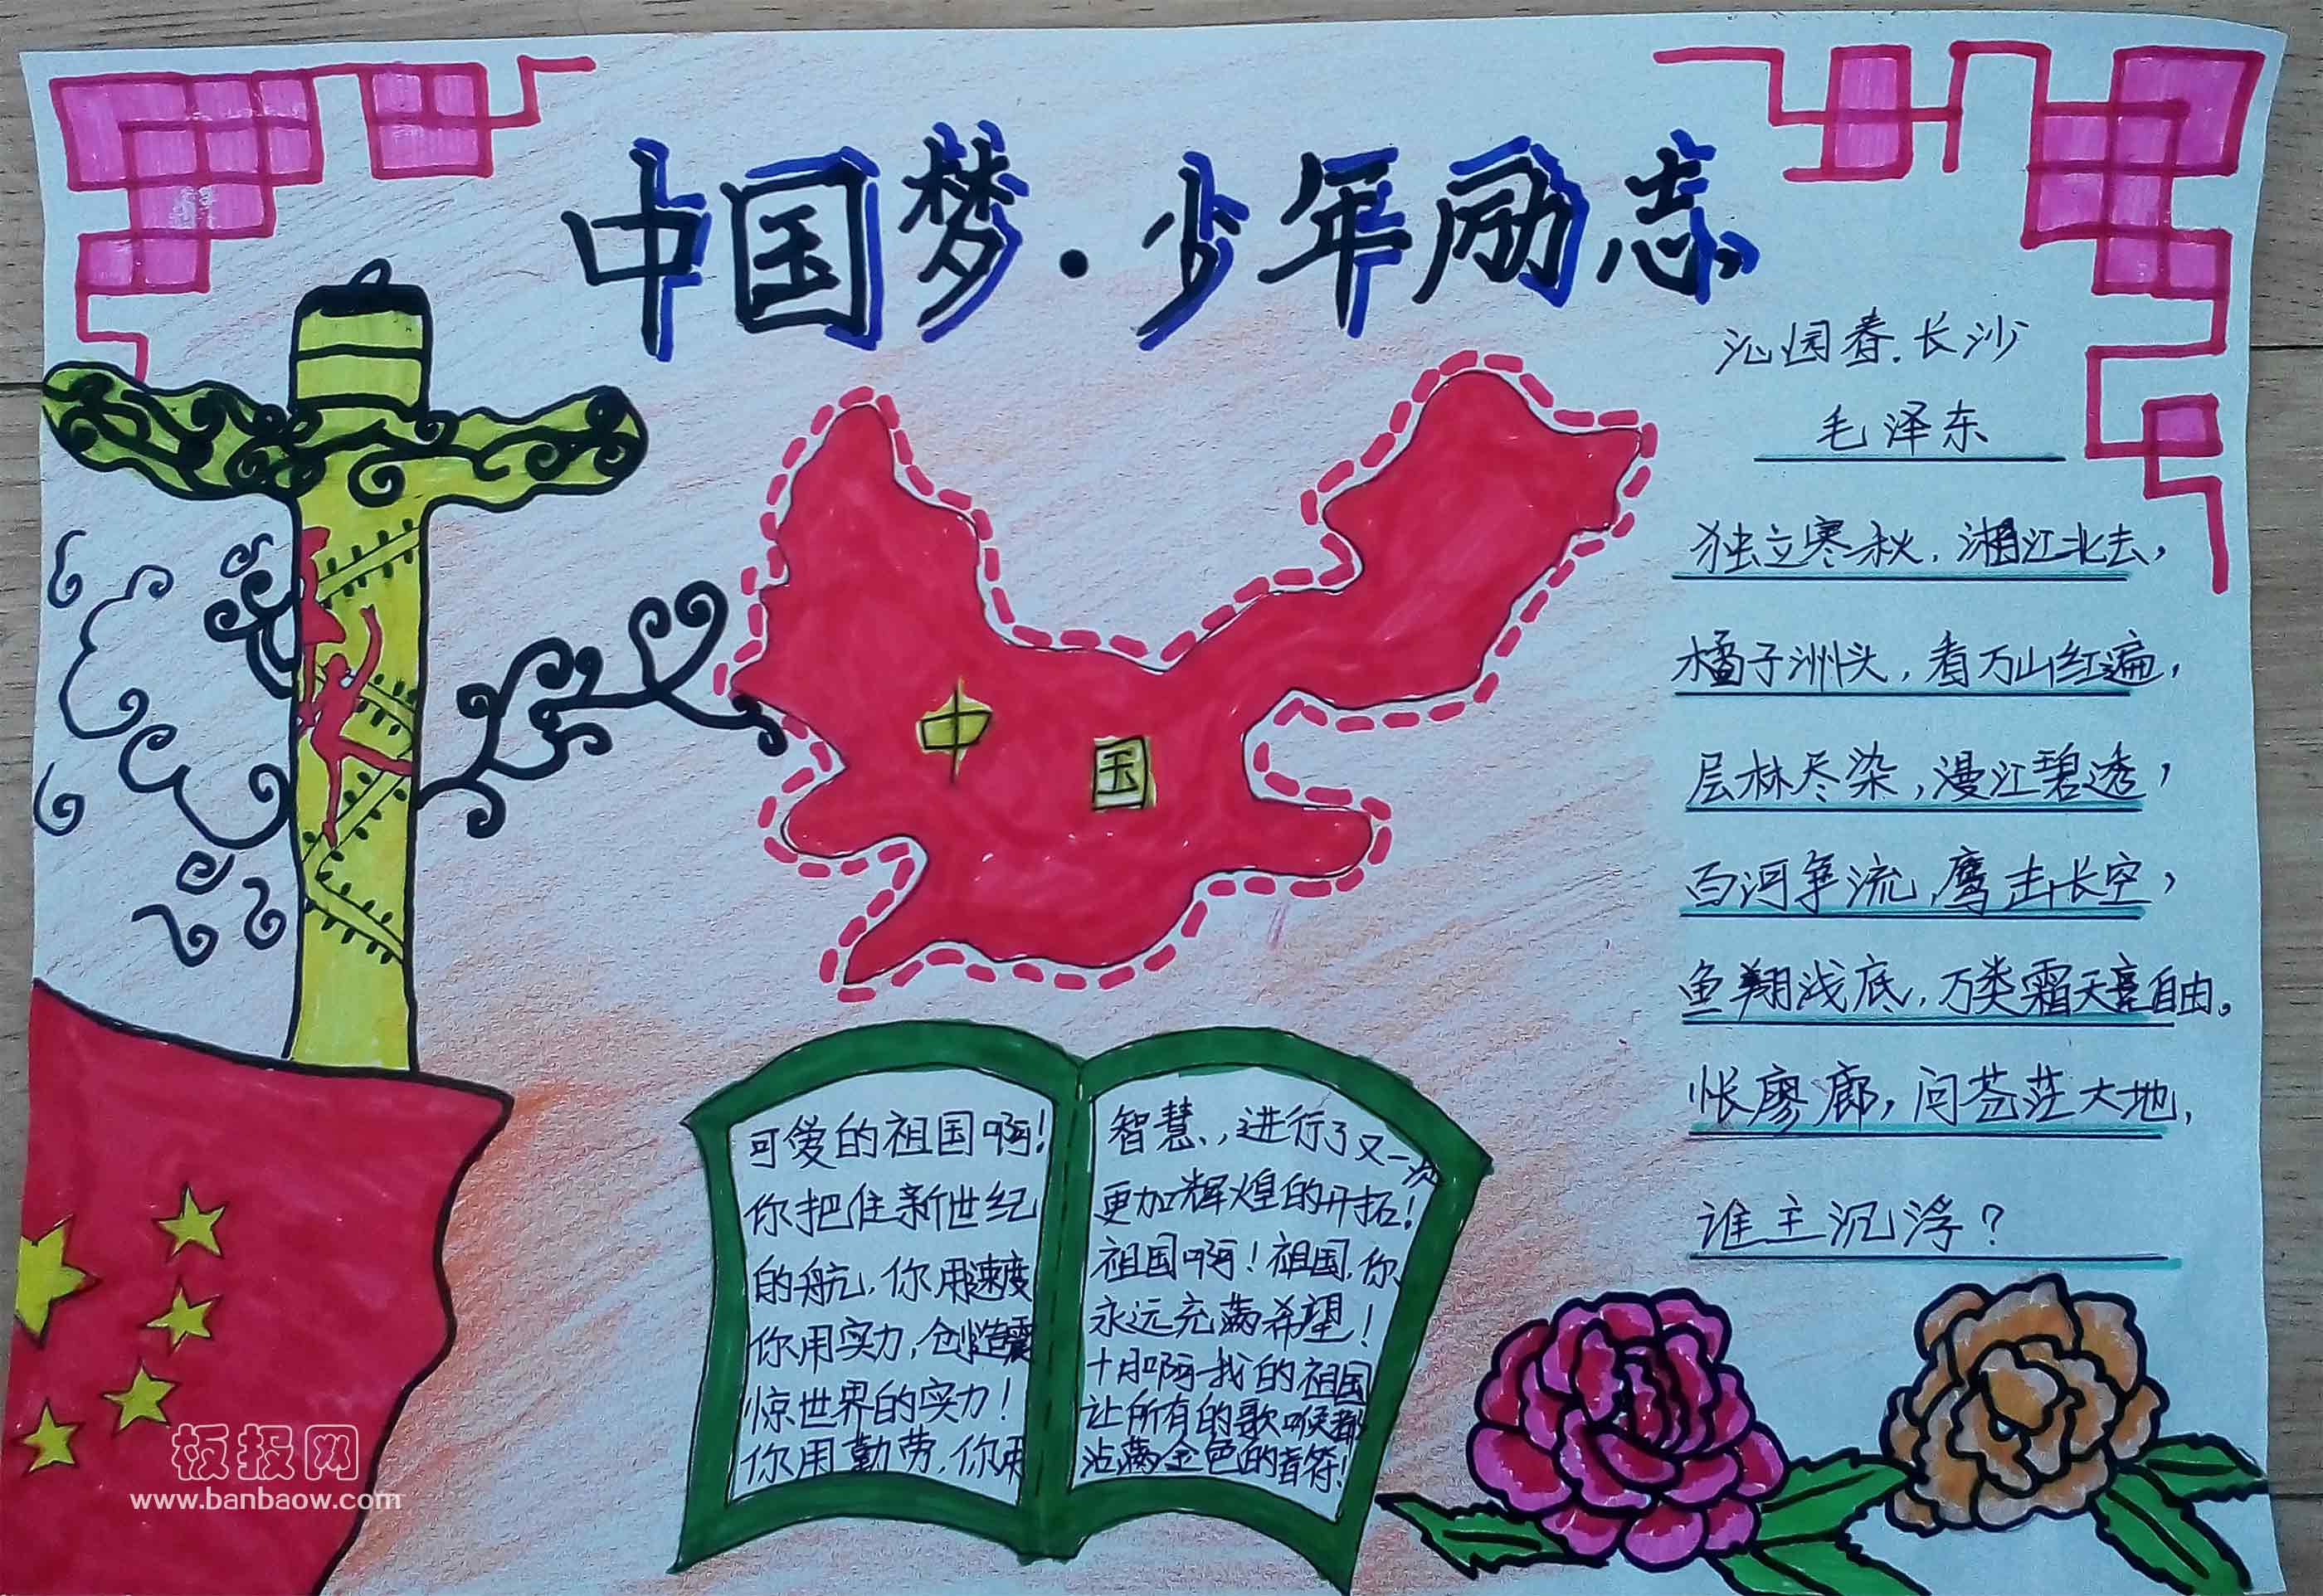 中国梦·少年励志
沁园春.长沙
毛泽东
独立寒秋，湘江北去，
橘子洲头，看万山红遍，
层林尽染，漫江碧透，
百河争流，鹰击长空，
鱼翔浅底，万类霜天竞自由。
怅廖廊，问苍茫大地，
谁主沉浮？
中国
可爱的祖国啊！
你把住新世纪
的航，你用速度
你用实力，创造震
惊世界的实力！
你用勤劳，你用
智慧，，进行了又一次
更加辉煌的开拓！
祖国啊！祖国，你
永远充满希望！
十月啊—我的祖国
让所有的歌喉都
沾满金色的音符！
板报网
www.banbaow.com